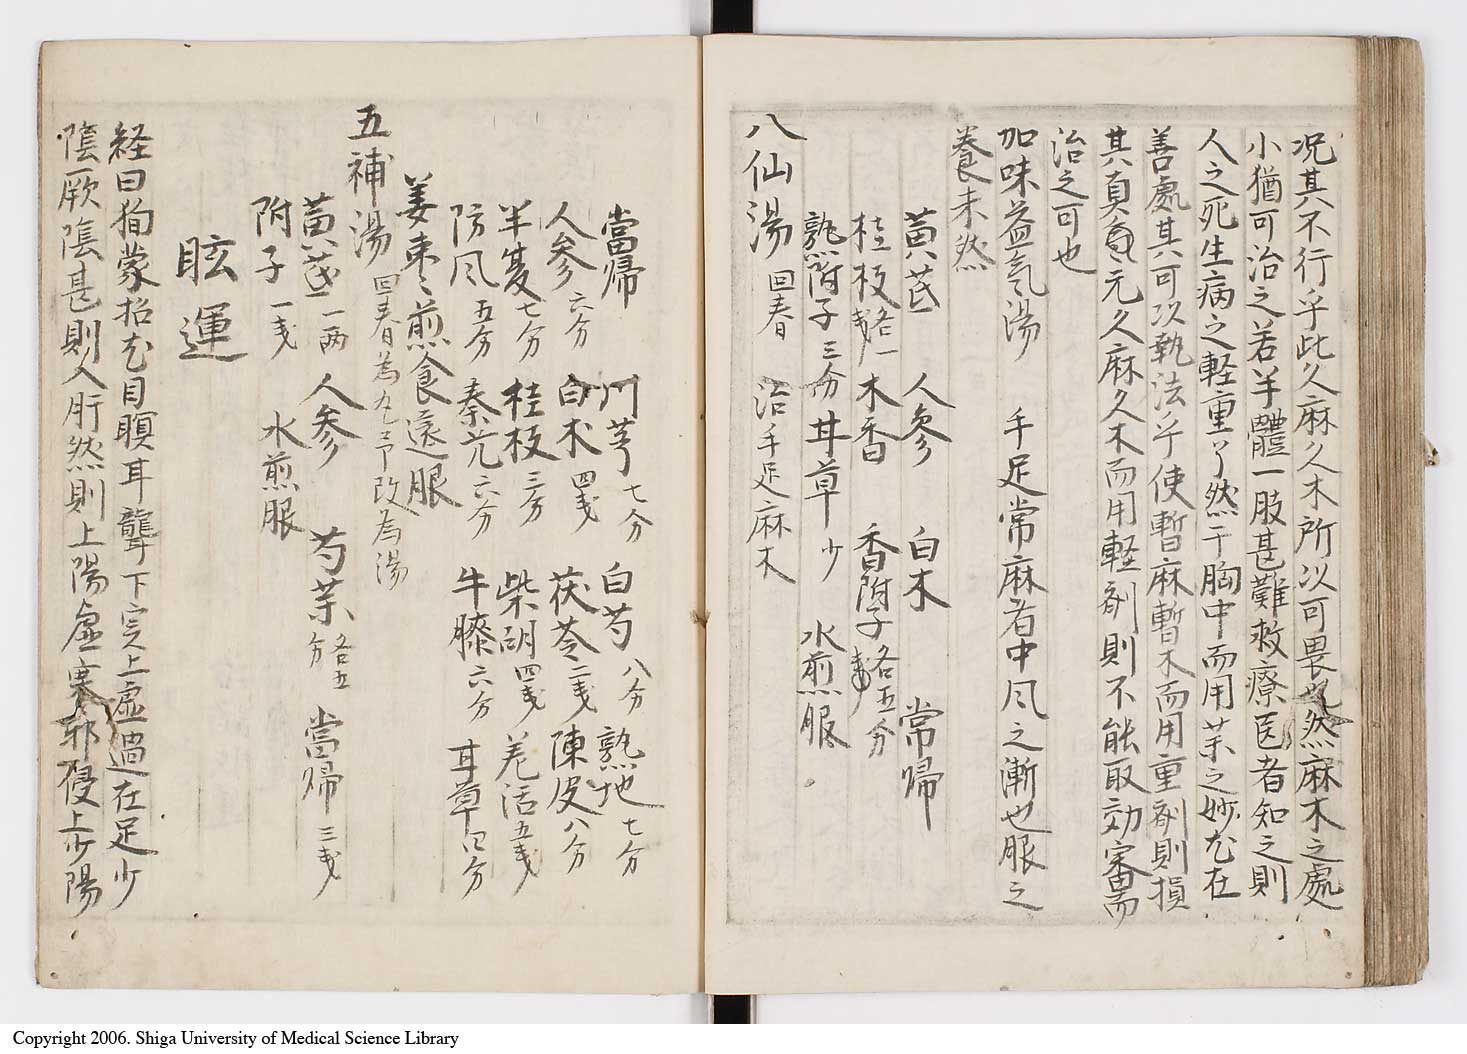 况其不行乎此久麻久木所以可畏也然麻木之處
小猶可治之若半體一肢甚難救療医者知之則
人之死生病之軽重了然于胸中而用薬之妙尤在
善處其可以執法乎使暫麻暫木而用重剤則損
其真氣元久麻久木而用軽剤則不能取効審而
治之可也
加味益気湯 手足常麻者中风之漸也服之
養未然
黄芪 人参 白木 當帰
桂枝各一戋 木香 香附子各五分
熟附子三分 甘草少 水煎服
八仙湯 回春 治手足麻木
當帰 川芎七分 白芍八分 熟地七分
人参六分 白术四戋 茯苓二戋 陳皮八分
半夏七分 桂枝三分 柴胡四戋 羌活五戋
防风五分 秦艽六分 牛膝六分 甘草四分
姜枣煎食遠服
五補湯 回春為丸予改為湯
黄芪一两 人参 芍薬各五分 當帰三戋
附子一戋 水煎服
眩運
経曰徇蒙招尤目瞑耳聾下实上虚過在足少
陰厥陰甚則入肝然則上陽虚寒邪侵上少陽